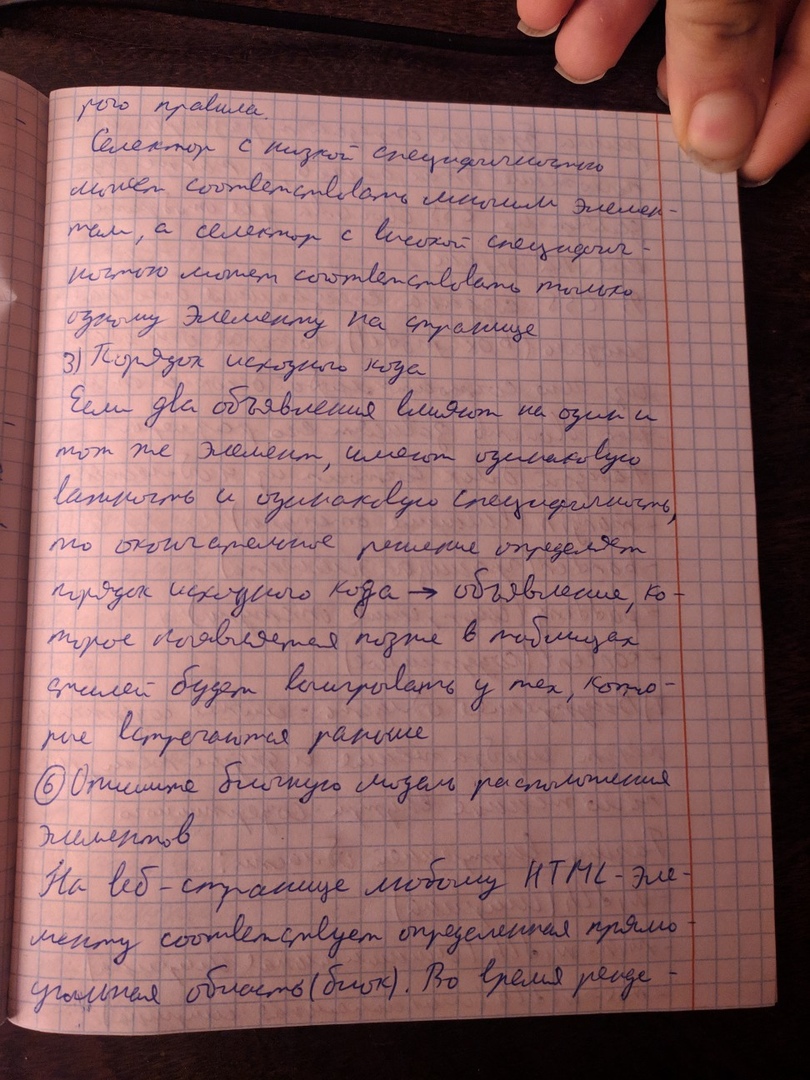 рого правила.
Селектор с низкой специфичностью
может соответствовать многим элемен-
там, а селектор с высокой специфич-
ностью может соответствовать только
одному элементу на странице
3) Порядок исходного кода
Если два объявления влияют на один и
тот же элемент, имеют одинаковую
важность и одинаковую специфичность,
то окончательное решение определяет
порядок исходного кода → объявление, ко-
торое появляется позже в таблицах
стилей будет выигрывать у тех, кото-
рые встречаются раньше
6 Опишите блочную модель расположения
элементов
На веб-странице любому HTML-эле-
менту соответствует определенная прямо-
угольная область (блок). Во время ренде-